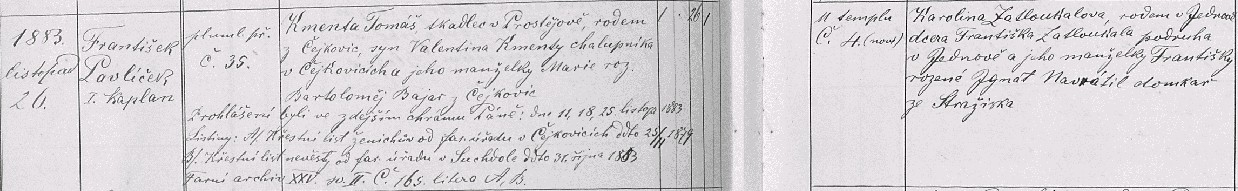 1883.
listopad
26.
František
Pavlíček
I. kaplan
pluml. př.
Č. 35.
Kmenta Tomáš, tkadlec v Prostějově, rodem
z Čejkovic, syn Valentina Kmenty chalupníka
v Čejkovicích a jeho manželky Marie roz.
Bartoloměj Bajar z Čejkovic
Prohlášení byli ve zdejším chrámu Páně: dne 11, 18, 25 listopa 1883
Listiny: A/ Křestní list ženichův od far. úřadu v Čejkovicích ddto 25/11 1879
B/. Křestní list nevěsty od far. úřadu v Suchdole ddto 31. října 1883
Farní archiv XXV. sv. II. Č. 165. litera A, B.
1 . 26 1
U templu
Č. 4. (nov.)
Karolina Zatloukalova, rodem v Jednově
dcera Františka Zatloukala podruha
v Jednově a jeho manželky Františky
rozené Ignat Navrátil domkař
ze Stražiska